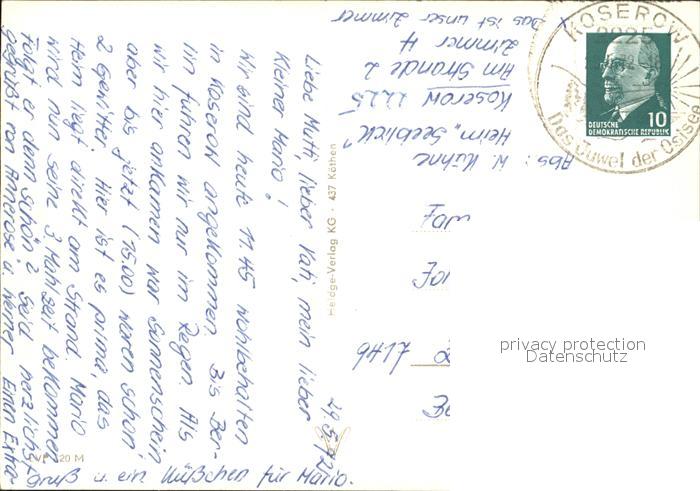 29.5.72
Liebe Mutti, lieber Vati, mein lieber
kleiner Mario!
Wir sind heute 11.45 wohlbehalten
in Koserow angekommen. Bis Ber-
lin fuhren wir nur im Regen. Als
wir hier ankamen war Sonnenschein
aber bis jetzt (15.00) waren schon
2 Gewitter. Hier ist es prima, das
Heim liegt direkt am Strand. Mario
wird nun seine 3 Mahlzeit bekommen
folgt er denn schön? Seid herzlichst
gegrüßt von Annerose u. Werner Einen Extra
gruß u. ein Küßchen für Mario.
20 M
Heldge-Verlag KG · 437 Köthen
x Das ist unser Zimmer
Zimmer 4
Am Strande 2
Koserow 2225
Heim „Seeblick"
Abs: W. Kühne
KOSEROW
2225
Das Juwel der Ostsee
10
DEUTSCHE
DEMOKRATISCHE REPUBLIK
Fam
9417
privacy protection
Datenschutz